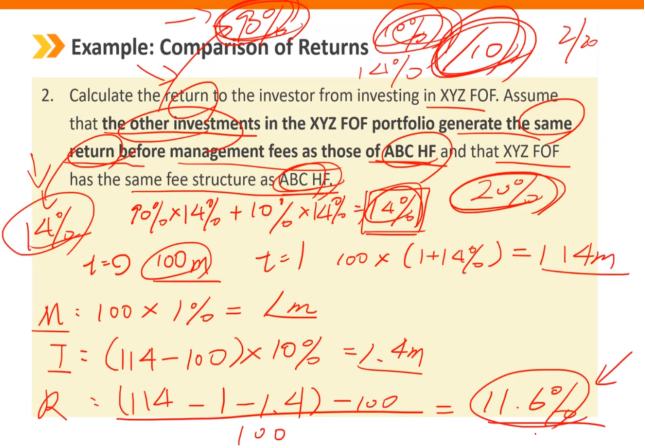 90%
10%
/10
2/20
14%
Example: Comparison of Returns
2. Calculate the return to the investor from investing in XYZ FOF. Assume
that the other investments in the XYZ FOF portfolio generate the same
return before management fees as those of ABC HF and that XYZ FOF
has the same fee structure as ABC HF.
14%
90%×14% + 10%×14% = 14%
20%
t=0 100m t=1 100×(1+14%)=114m
M: 100×1% = 1m
I: (114-100)×10% = 1.4m
R: (114-1-1.4)-100 = 11.6%
100